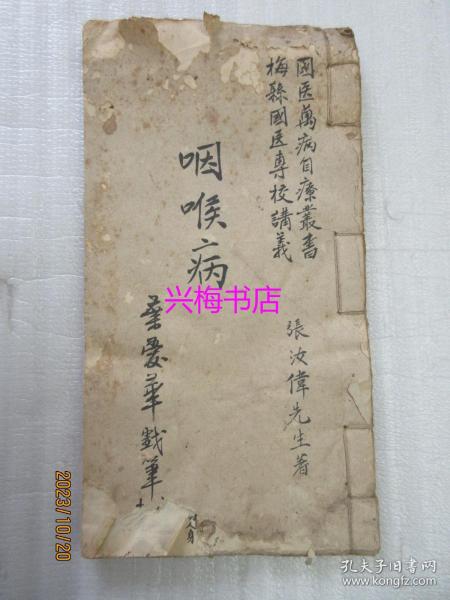 国医萬病自療叢書
梅縣國医專校講義
張汝偉先生著
咽喉病
愛華戲筆
兴梅书店
2023/10/20
孔夫子旧书网
www.kongfz.com